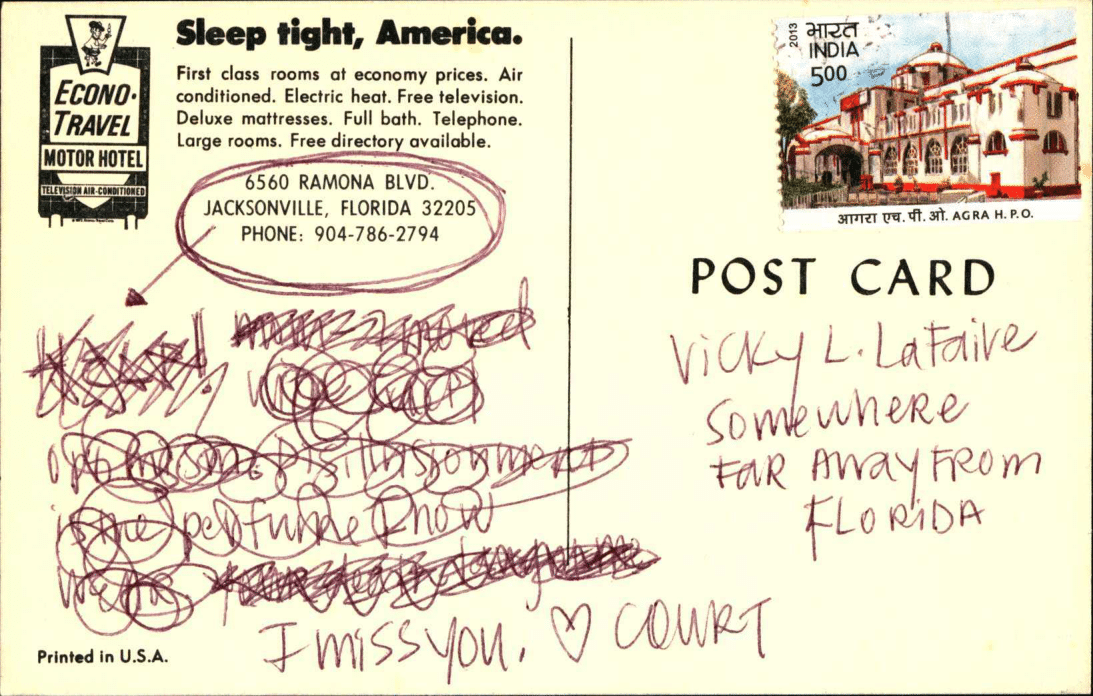 Sleep tight, America.
First class rooms at economy prices. Air
conditioned. Electric heat. Free television.
Deluxe mattresses. Full bath. Telephone.
Large rooms. Free directory available.
ECONO-
TRAVEL
MOTOR HOTEL
TELEVISION AIR-CONDITIONED
6560 RAMONA BLVD.
JACKSONVILLE, FLORIDA 32205
PHONE: 904-786-2794
optimism. Disillusionment
is the perfume I now
wear.
I miss you. ♡ COURT
Printed in U.S.A.
2013
भारत
INDIA
500
आगरा एच. पी. ओ. AGRA H. P. O.
POST CARD
Vicky L. LaFaive
Somewhere
FAR AWAY FROM
FLORIDA